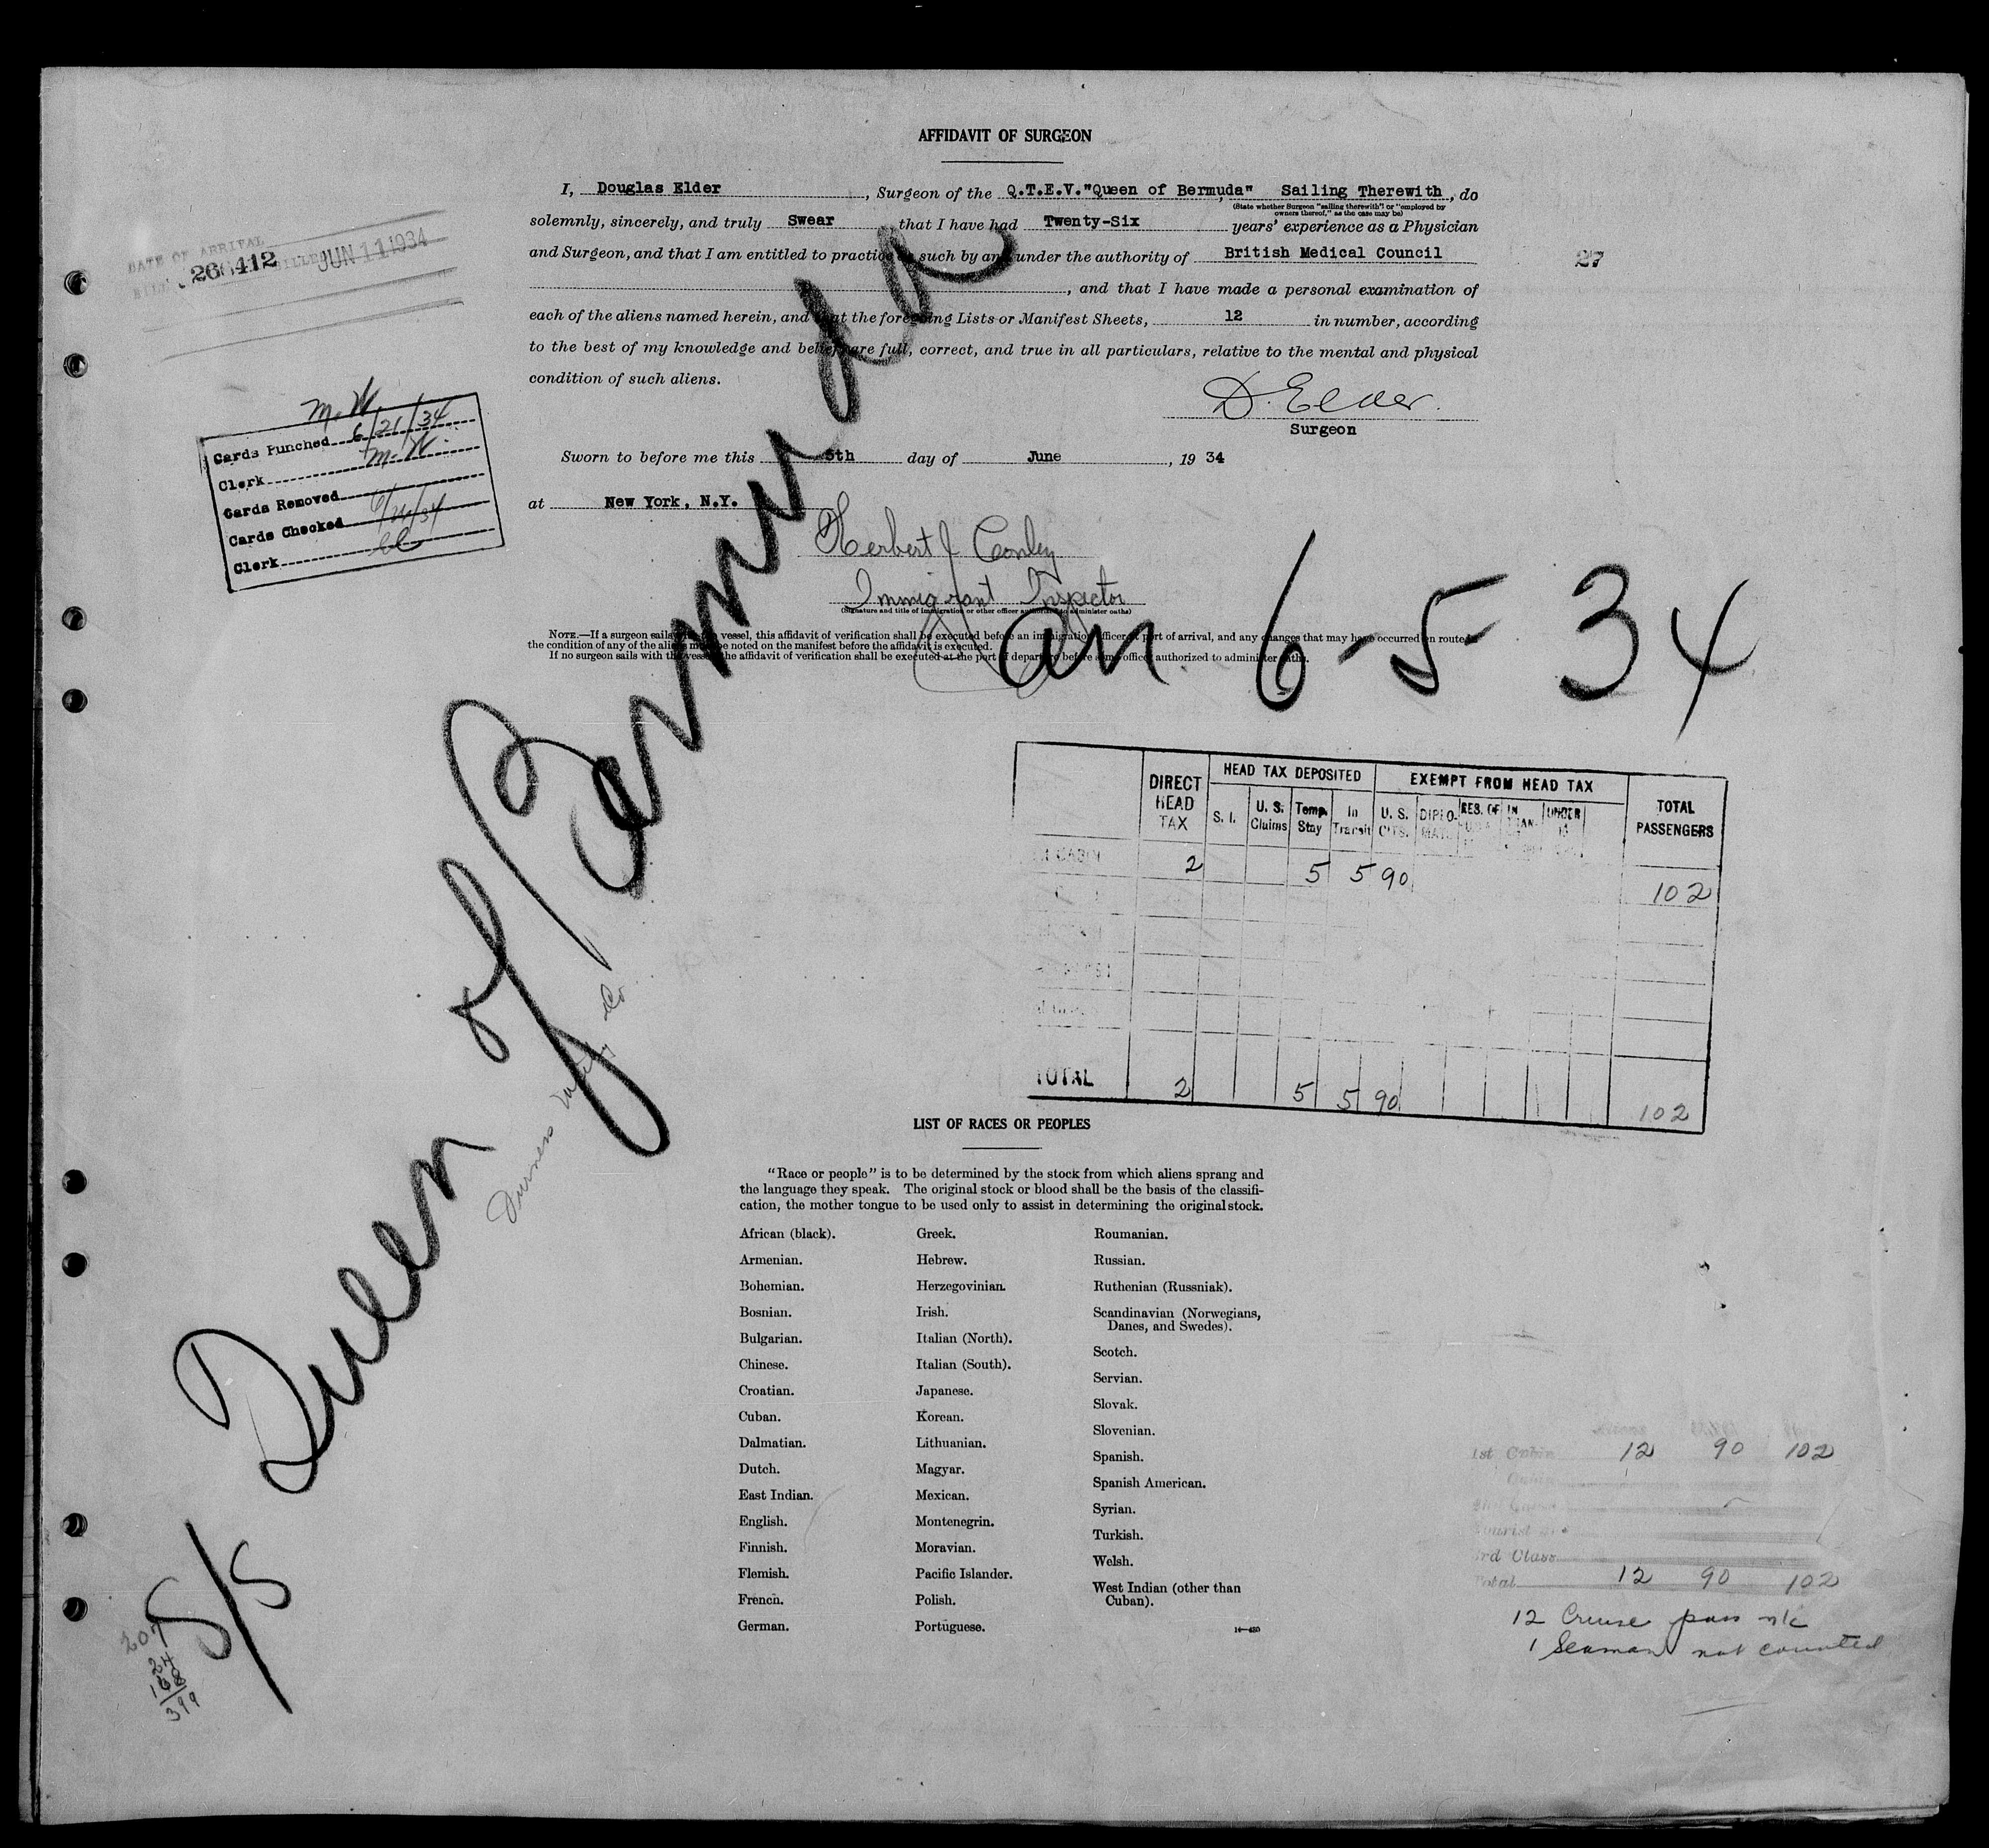 AFFIDAVIT OF SURGEON
I, Douglas Elder, Surgeon of the Q.T.E.V."Queen of Bermuda", Sailing Therewith, do
(State whether Surgeon "sailing therewith" or "employed by
owners thereof," as the case may be)
solemnly, sincerely, and truly Swear that I have had Twenty-Six years' experience as a Physician
and Surgeon, and that I am entitled to practice as such by and under the authority of British Medical Council
, and that I have made a personal examination of
each of the aliens named herein, and that the foregoing Lists or Manifest Sheets, 12 in number, according
to the best of my knowledge and belief, are full, correct, and true in all particulars, relative to the mental and physical
condition of such aliens.
D. Elder.
Surgeon
Sworn to before me this 5th day of June, 19 34
at New York, N.Y.
Herbert J Conley
Immigrant Inspector
(Signature and title of immigration or other officer authorized to administer oaths)
NOTE.—If a surgeon sails with the vessel, this affidavit of verification shall be executed before an immigration officer at port of arrival, and any changes that may have occurred en route in
the condition of any of the aliens must be noted on the manifest before the affidavit is executed.
If no surgeon sails with the vessel, the affidavit of verification shall be executed at the port of departure before some officer authorized to administer oaths.
DATE OF ARRIVAL
266412 JUN 11 1934
27
M. W
Cards Punched 6/21/34
Clerk M. W.
Cards Removed
Cards Checked 6/26/34
Clerk
S/S Queen of Bermuda
an 6-5-34
Furness Co.
DIRECT HEAD TAX
HEAD TAX DEPOSITED
EXEMPT FROM HEAD TAX
TOTAL PASSENGERS
S. I. U. S. Claims Temp. Stay In Transit U. S. CITS. DIPLOMAT RES. OF IN TRAN- UNDER
2 5 5 90 102
TOTAL 2 5 5 90 102
LIST OF RACES OR PEOPLES
"Race or people" is to be determined by the stock from which aliens sprang and
the language they speak. The original stock or blood shall be the basis of the classifi-
cation, the mother tongue to be used only to assist in determining the original stock.
African (black).
Armenian.
Bohemian.
Bosnian.
Bulgarian.
Chinese.
Croatian.
Cuban.
Dalmatian.
Dutch.
East Indian.
English.
Finnish.
Flemish.
French.
German.
Greek.
Hebrew.
Herzegovinian.
Irish.
Italian (North).
Italian (South).
Japanese.
Korean.
Lithuanian.
Magyar.
Mexican.
Montenegrin.
Moravian.
Pacific Islander.
Polish.
Portuguese.
Roumanian.
Russian.
Ruthenian (Russniak).
Scandinavian (Norwegians,
Danes, and Swedes).
Scotch.
Servian.
Slovak.
Slovenian.
Spanish.
Spanish American.
Syrian.
Turkish.
Welsh.
West Indian (other than
Cuban).
1st Cabin 12 90 102
Cabin
2nd Cabin
Tourist
3rd Class
Total 12 90 102
12 Cruise pass n/c
1 Seaman not counted
207
24
168
399